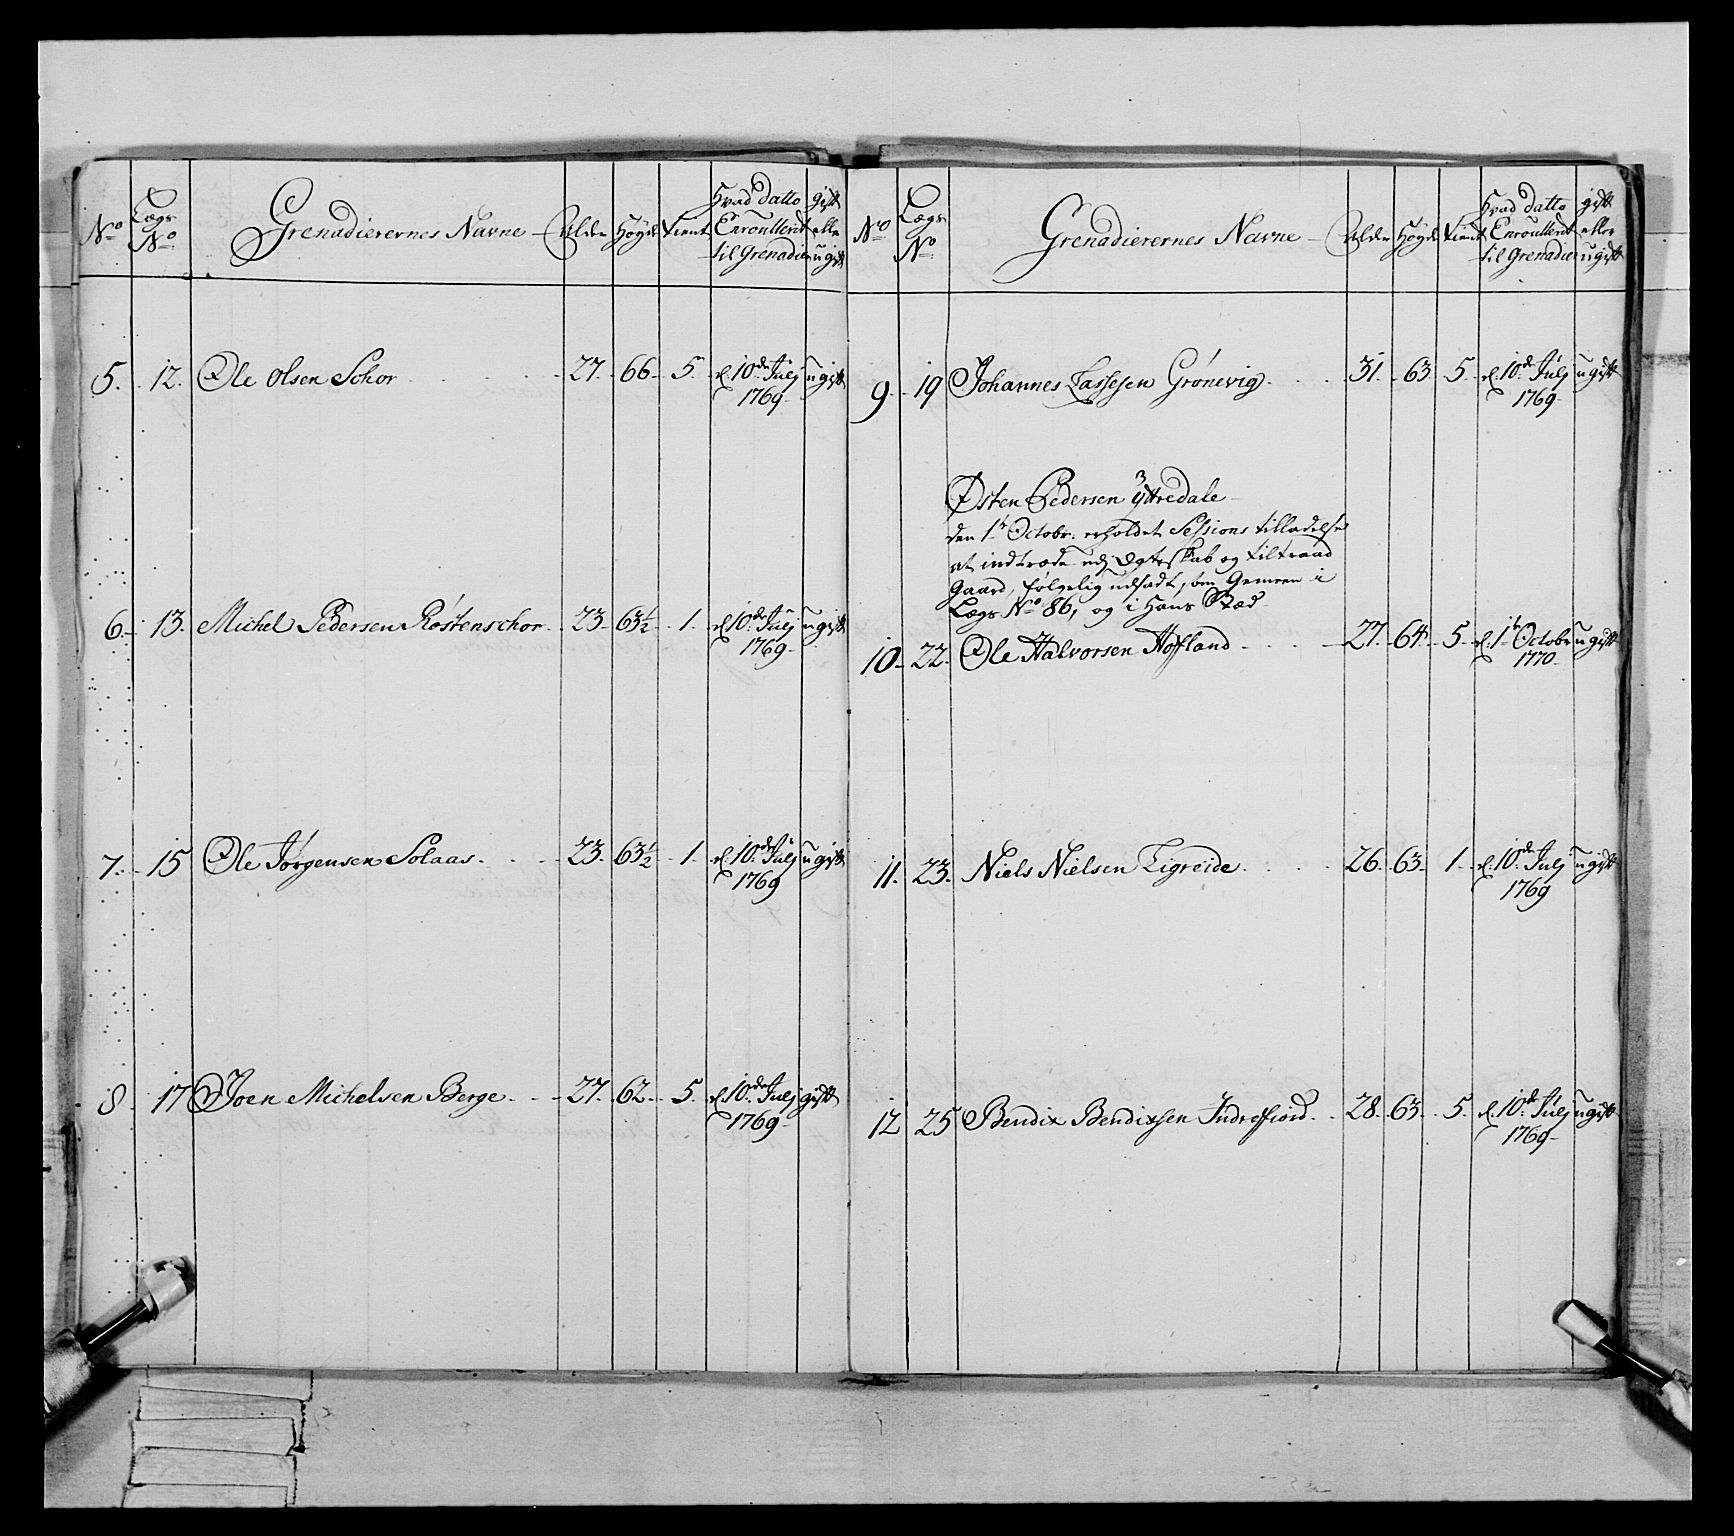 No Lægs No Grenadierernes Navne Alder Høyde tient Hvad Datto Enroullerit til Grenadier gift eller ugift
5. 12. Ole Olsen Schor 27. 66. 5. d. 10de Julj 1769 ugift
6. 13. Michel Pedersen Røstenschor 23. 63½ 1. d. 10de Julj 1769 ugift
7. 15 Ole Jørgensen Solaas 23. 63½ 1. d. 10de Julj 1769 ugift
8 17 Joen Michelsen Berge 27. 62. 5. d. 10de Julj 1769 gift
No Lægs No Grenadierernes Navne Alder Høyde tient Hvad Datto Enroullerit til Grenadier gift eller ugift
9. 19 Johannes Lassesen Grønevig 31. 63. 5. d. 10de Julj 1769 ugift
Østen Pedersen Yttredale
den 1te Octobr: erholdet Sessions tilladelse
at indtræde udj Ægteskab og tiltraad
Gaard, følgelig udsadt, som Gemeen i
Lægs No 86, og i Hans Stæd
10. 22. Ole Halvorsen Hofland 27. 64. 5. d. 1te Octobr 1770 ugift
11. 23. Niels Nielsen Ligreide 26. 63. 1. d. 10de Julj 1769 ugift
12 25 Bendix Bendixsen Indrefiord 28. 63. 5. d. 10de Julj 1769 ugift